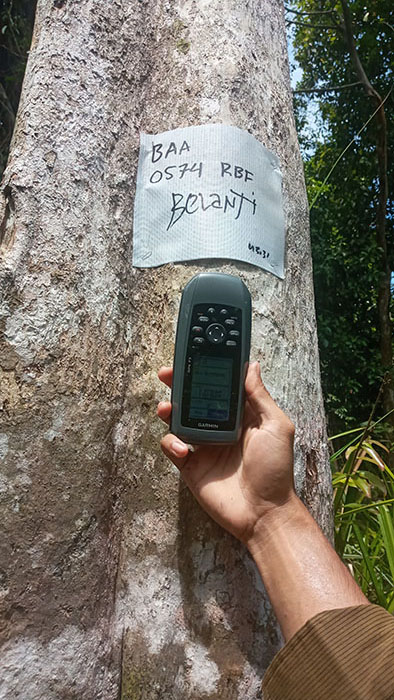 BAA
0574 RBF
BELANTI
GARMIN